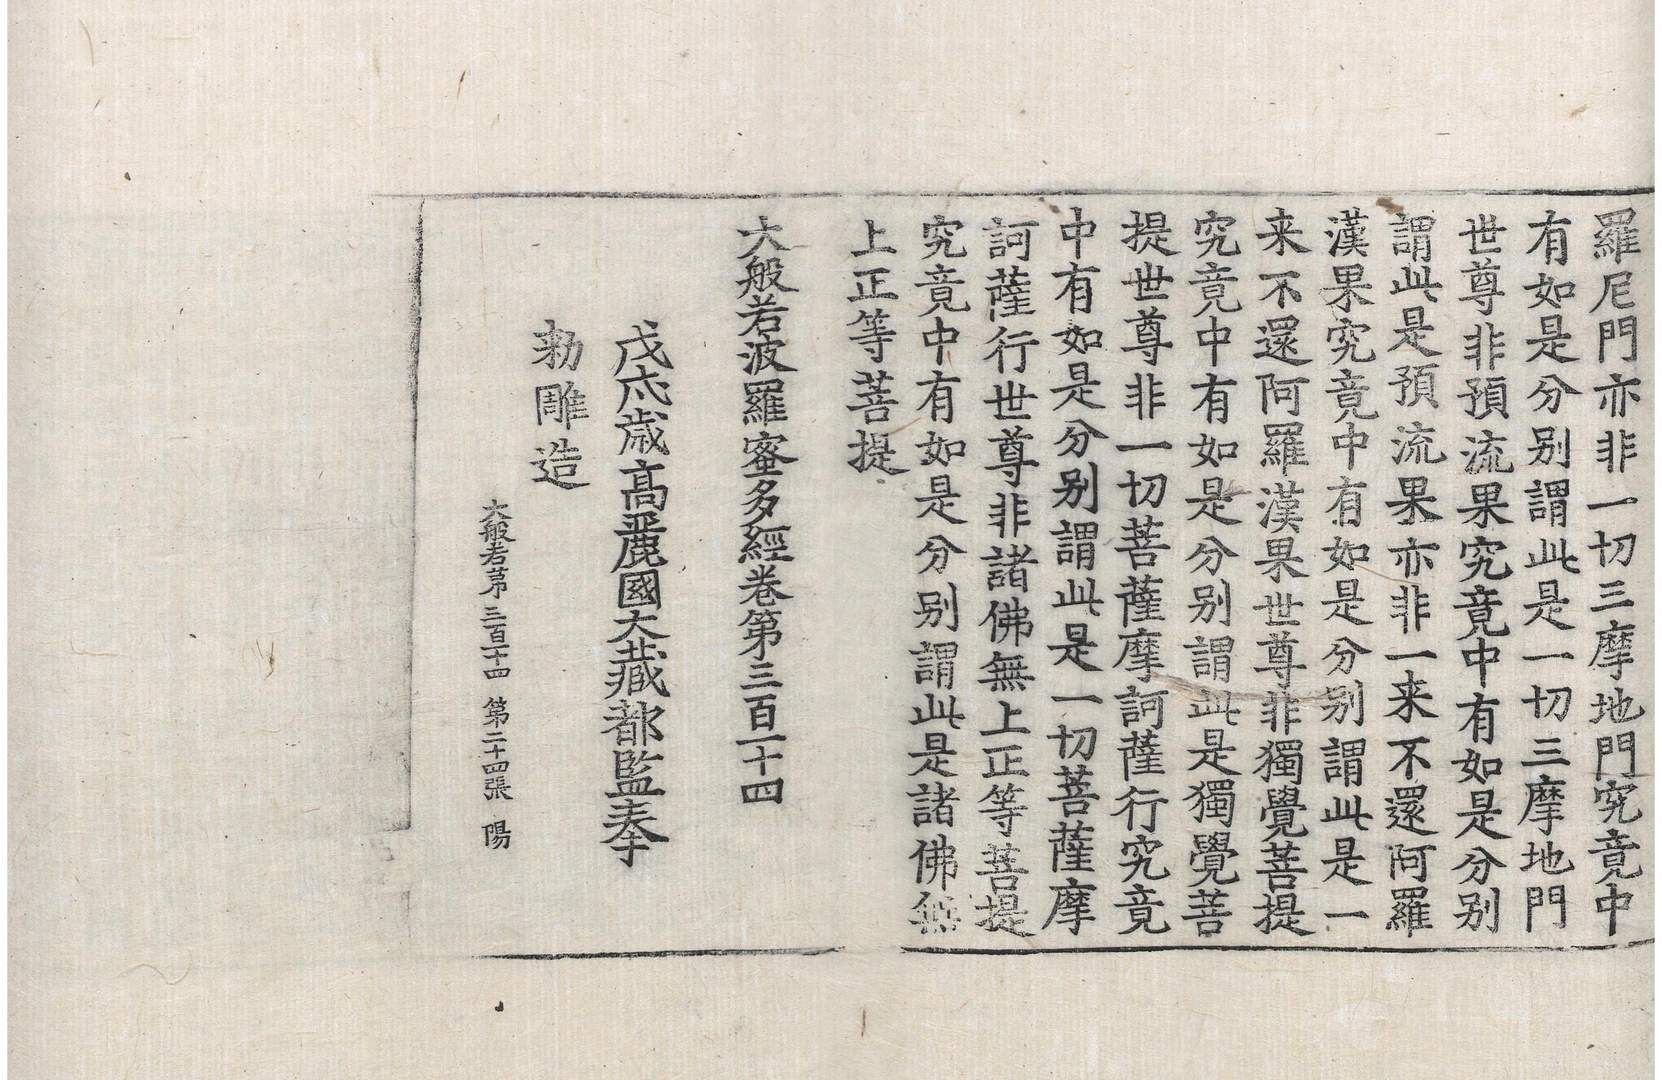 羅尼門亦非一切三摩地門究竟中
有如是分别謂此是一切三摩地門
世尊非預流果究竟中有如是分别
謂此是預流果亦非一来不還阿羅
漢果究竟中有如是分别謂此是一
来不還阿羅漢果世尊非獨覺菩提
究竟中有如是分别謂此是獨覺菩
提世尊非一切菩薩摩訶薩行究竟
中有如是分别謂此是一切菩薩摩
訶薩行世尊非諸佛無上正等菩提
究竟中有如是分别謂此是諸佛無
上正等菩提
大般若波羅蜜多經卷第三百一十四
戊戌歲高麗國大藏都監奉
勅雕造
大般若苐三百一十四 第二十四張 陽